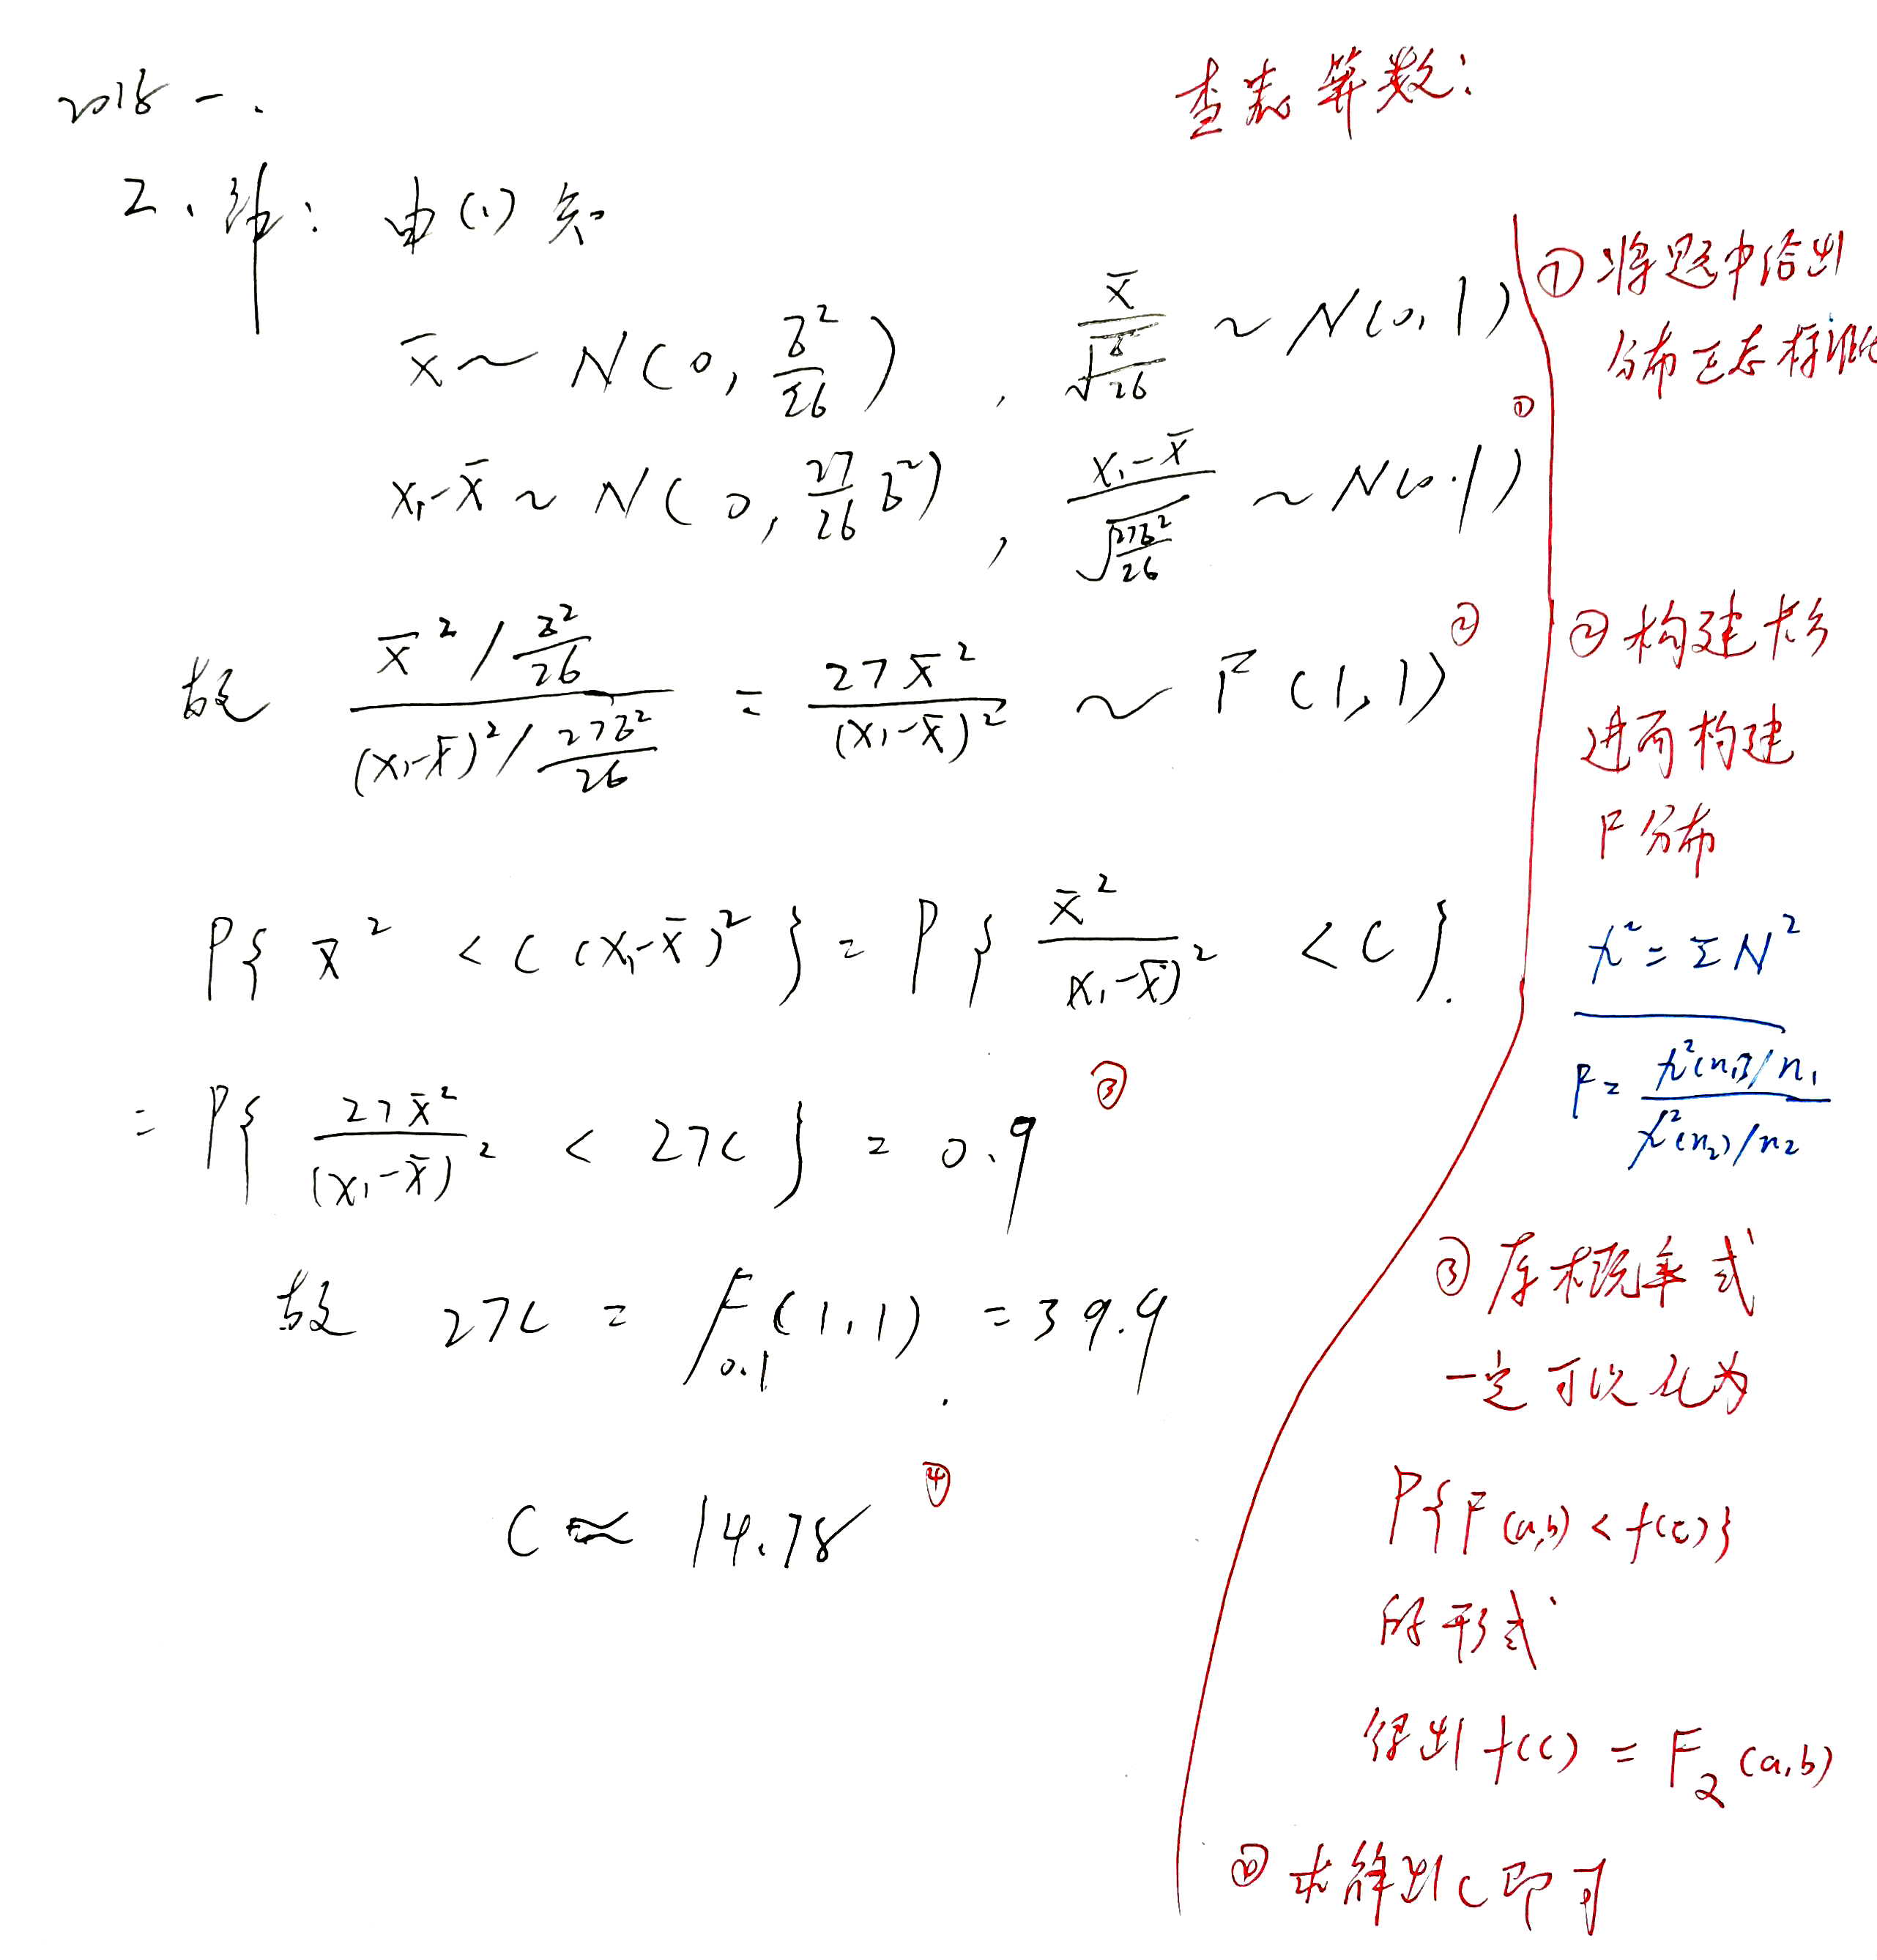 2018 一、
查表算数：
2、解：由(1)知
x̄ ~ N(0, σ²/26) , x̄/√(σ²/26) ~ N(0,1)
x₁-x̄ ~ N(0, 27/26 σ²) , (x₁-x̄)/√(27σ²/26) ~ N(0,1) ①
故 (x̄²/(σ²/26))/((x₁-x̄)²/(27σ²/26)) = 27x̄²/(x₁-x̄)² ~ F(1,1) ②
P{ x̄² < C(x₁-x̄)² } = P{ x̄²/(x₁-x̄)² < C }.
= P{ 27x̄²/(x₁-x̄)² < 27C } = 0.9 ③
故 27C = F₀.₁(1,1) = 39.9
C ≈ 14.78 ④
① 将题中给出
分布正态标准化
② 构建卡方
进而构建
F分布
χ² = ΣN²
F = (χ²(n₁)/n₁)/(χ²(n₂)/n₂)
③ 原概率式
一定可以化为
P{F(a,b) < f(c)}
的形式
得出 f(c) = F_α(a,b)
④ 求解出C即可